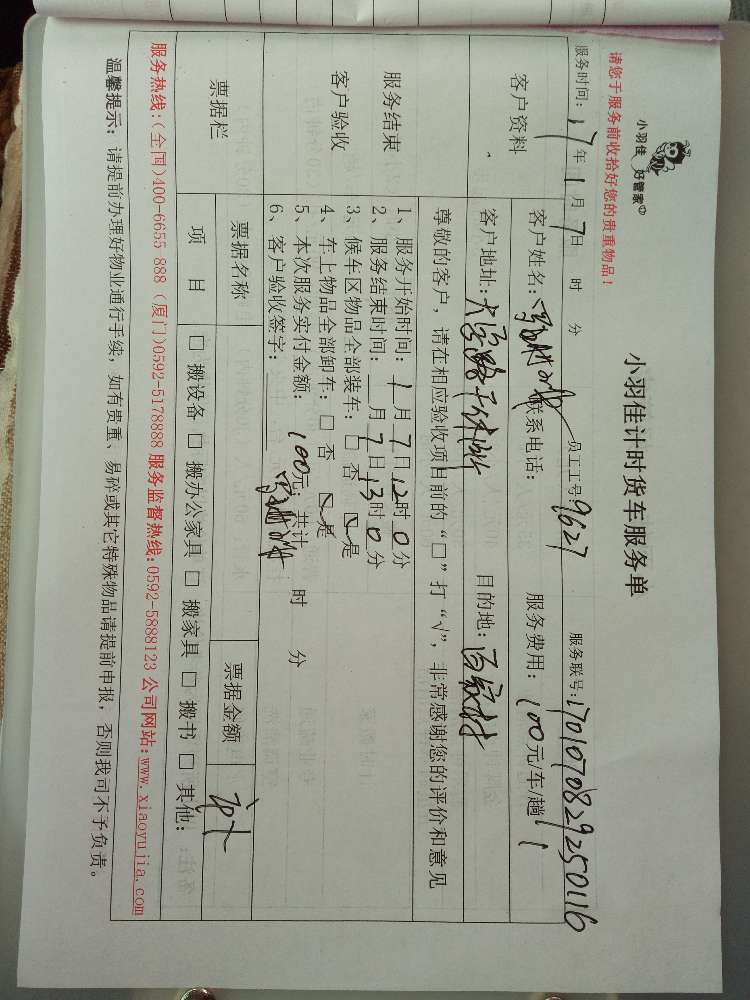 小羽佳 好管家
小羽佳计时货车服务单
请您于服务前收拾好您的贵重物品!
服务时间: 17年1月7日 时 分 员工工号: 9627 服务联号: 1701070829250116
客户资料
客户姓名: 联系电话: 服务费用: 100元/车/趟
客户地址: 大学路 目的地: 百家村
服务结束
客户验收
尊敬的客户，请在相应验收项目前的“□”打“√”，非常感谢您的评价和意见
1、服务开始时间: 1月7日12时0分
2、服务结束时间: 月7日13时0分
3、候车区物品全部装车: □ 否 ☑ 是
4、车上物品全部卸车: □ 否 ☑ 是
5、本次服务实付金额: 100元; 共计 时 分
6、客户验收签字:
票据栏
票据名称 票据金额
项 目 □ 搬设备 □ 搬办公家具 □ 搬家具 □ 搬书 □ 其他:
服务热线:(全国)400-6655 888 (厦门)0592-5178888 服务监督热线:0592-5888123 公司网站:www.xiaoyujia.com
温馨提示: 请提前办理好物业通行手续; 如有贵重、易碎或其它特殊物品请提前申报, 否则我司不予负责。